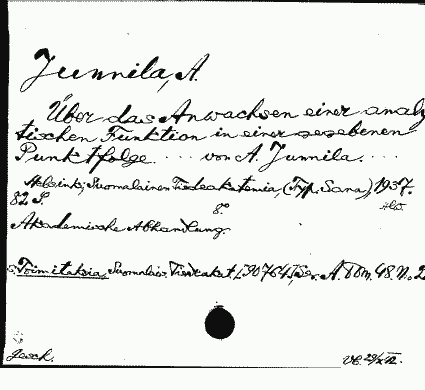 Junnila, A.
Über das Anwachsen einer analy
tischen Funktion in einer gegebenen
Punktfolge.... von A. Junnila....
Helsinki, Suomalainen Tiedeakatemia, (Typ. Sana), 1937.
82 S. 8°
Akademische Abhandlung.
Toimituksia, Suomalais. Tiedeakat. Ser. A. Tom. 48. N:o 2
Gesch.